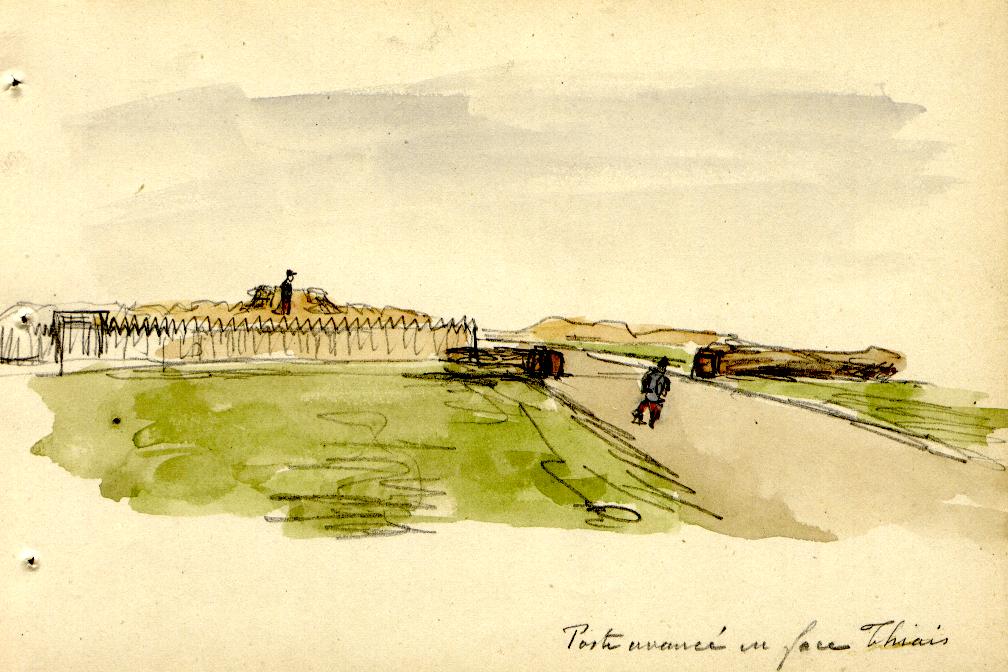 Poste avancé en face Thiais